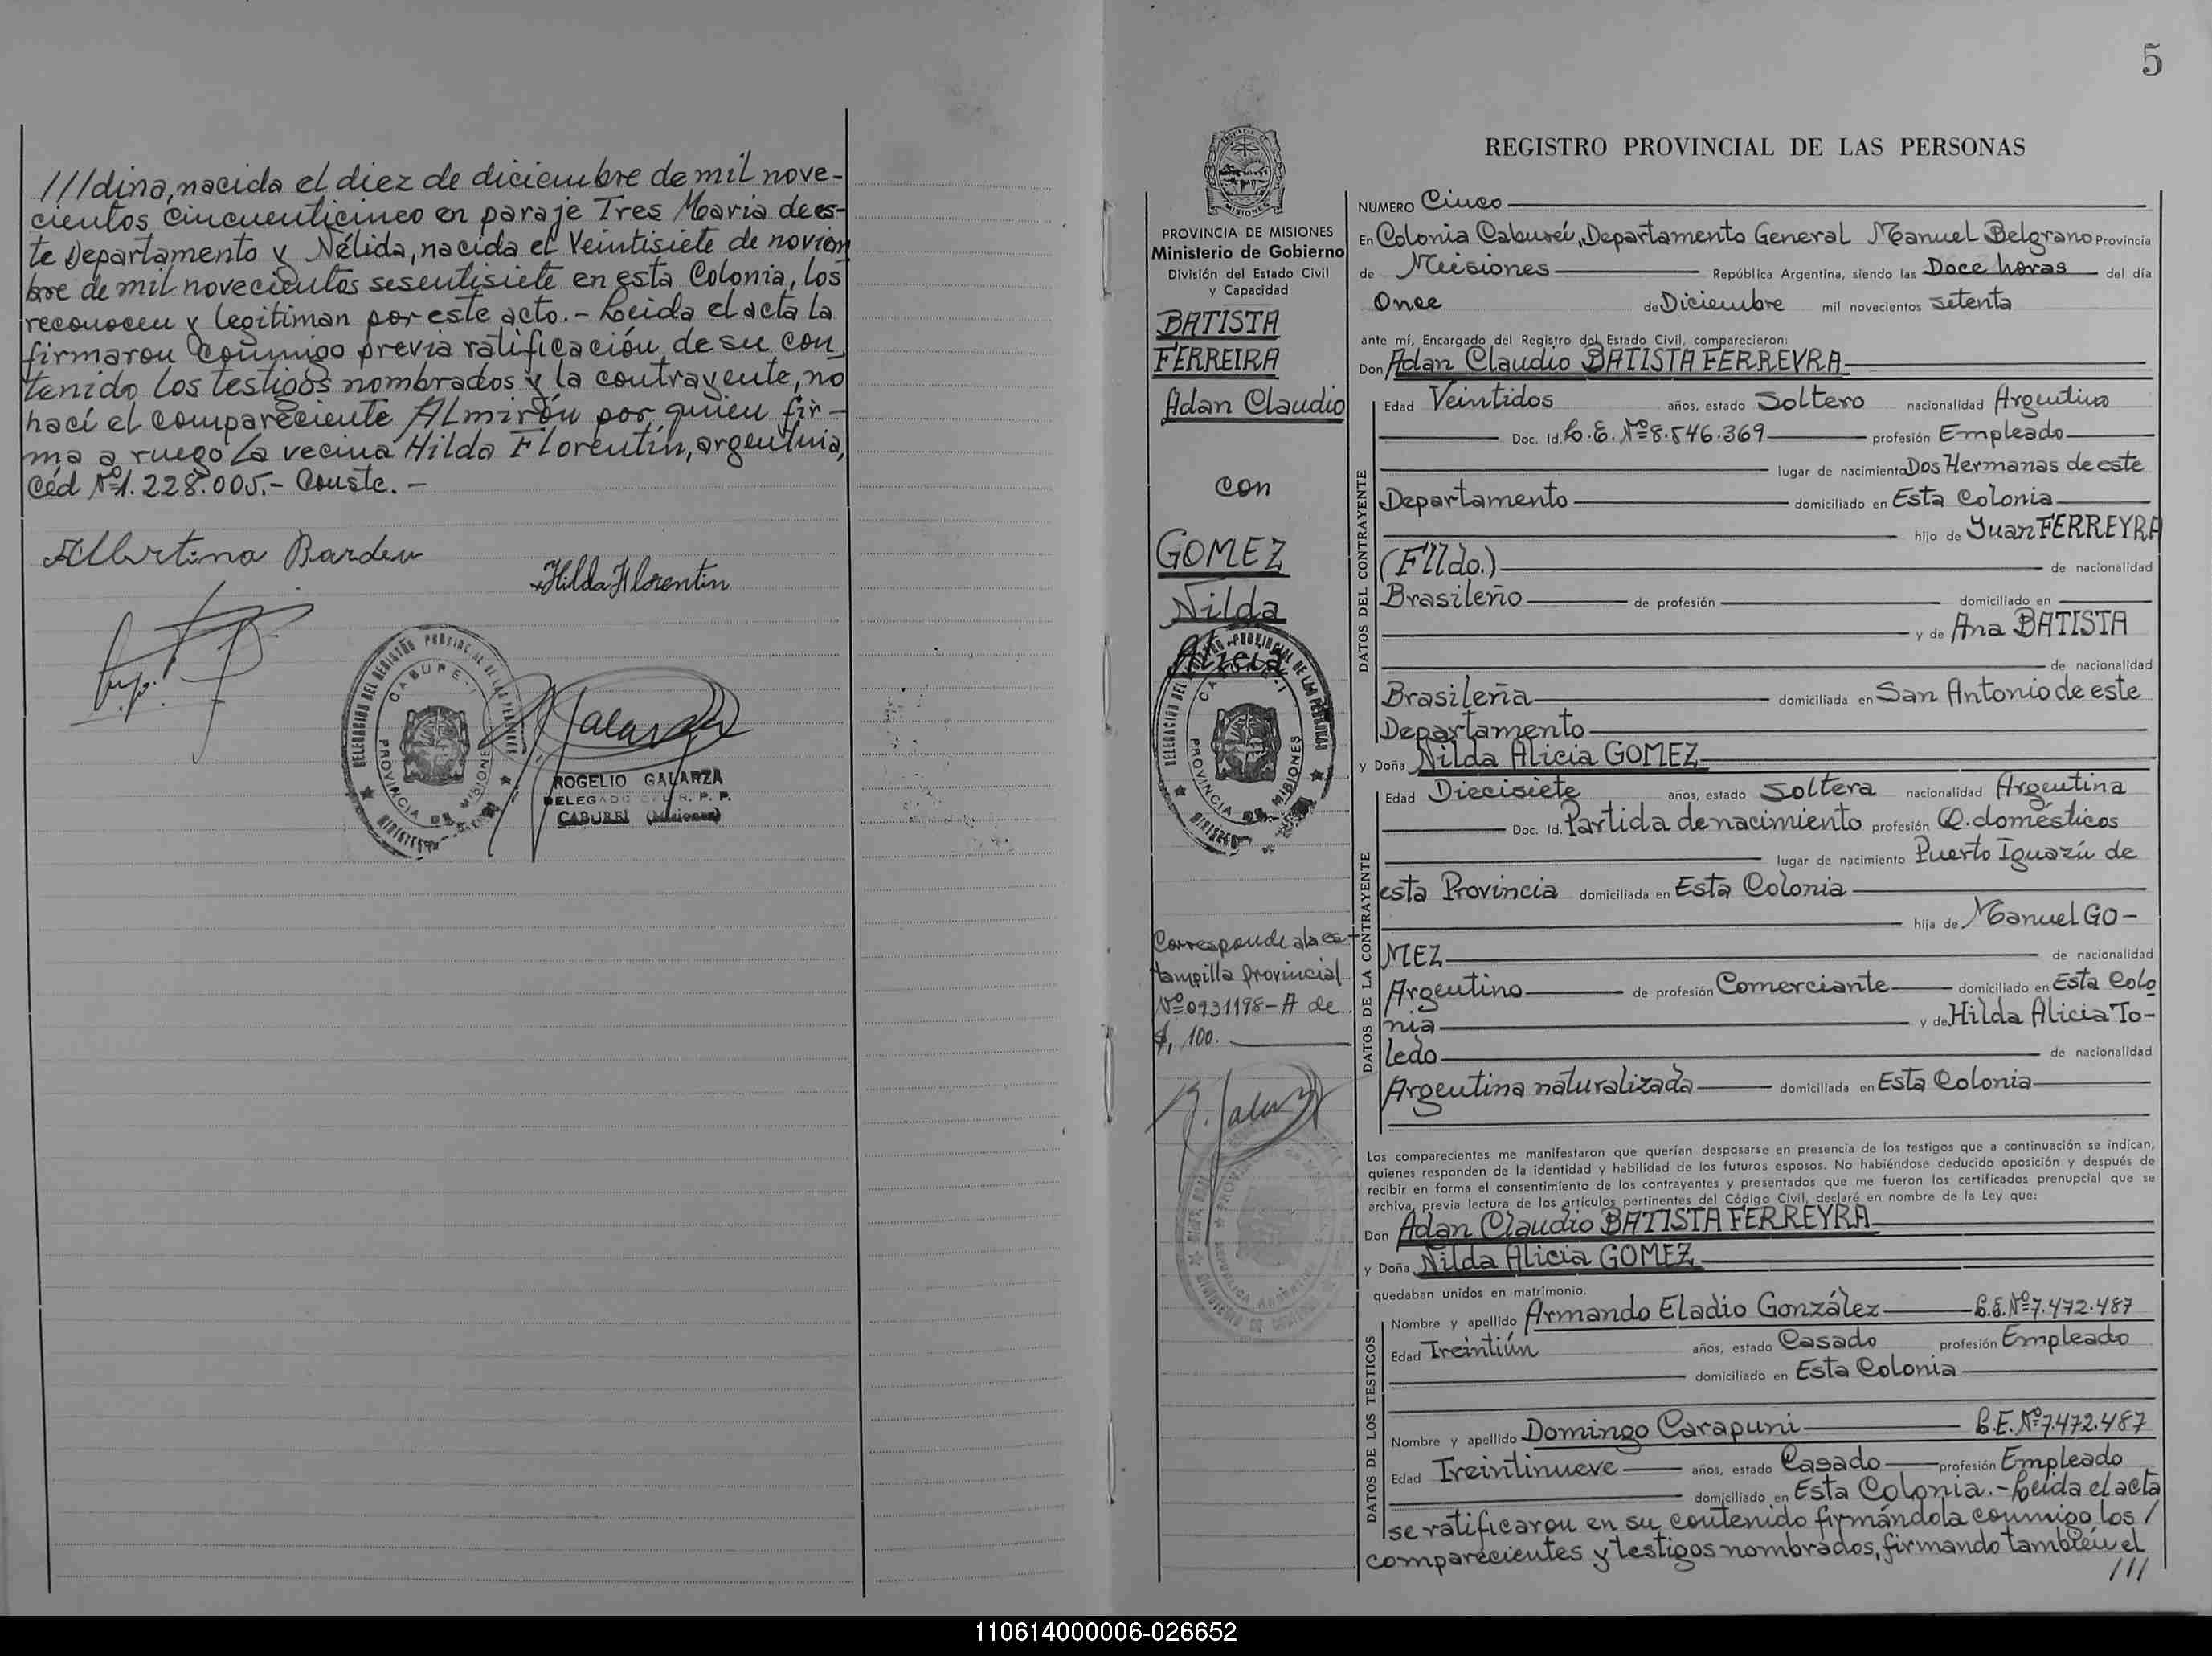 ///dina, nacida el diez de diciembre de mil nove-
cientos cincuenticinco en paraje Tres Maria de es-
te Departamento y Nélida, nacida el Veintisiete de noviem
bre de mil novecientos sesentisiete en esta Colonia, los
reconocen y legitiman por este acto.- Leida el acta la
firmaron conmigo previa ratificación de su con
tenido los testigos nombrados y la contrayente, no
hací el compareciente Almirón por quien fir-
ma a ruego la vecina Hilda Florentin, argentina,
Céd Nº1.228.005.- Conste.-
Albertina Barden
Hilda Florentin
DELEGACION DEL REGISTRO PROVINCIAL DE LAS PERSONAS
CABURE-I
PROVINCIA DE MISIONES
ROGELIO GALARZA
DELEGADO R. P. P.
CABUREI (Misiones)
5
MISIONES
PROVINCIA DE MISIONES
Ministerio de Gobierno
División del Estado Civil
y Capacidad
BATISTA
FERREIRA
Adan Claudio
con
GOMEZ
Nilda
Alicia
DELEGACION DEL REGISTRO PROVINCIAL DE LAS PERSONAS
CABURE-I
PROVINCIA DE MISIONES
Corresponde a la es-
tampilla provincial
Nº0931198-A de
$, 100.
REGISTRO PROVINCIAL DE LAS PERSONAS
NUMERO Cinco
En Colonia Caburei, Departamento General Manuel Belgrano Provincia
de Misiones República Argentina, siendo las Doce horas del día
Once de Diciembre mil novecientos setenta
ante mí, Encargado del Registro del Estado Civil, comparecieron:
Don Adan Claudio BATISTA FERREYRA
DATOS DEL CONTRAYENTE
Edad Veintidos años, estado Soltero nacionalidad Argentina
Doc. Id. L.E. Nº8.546.369 profesión Empleado
lugar de nacimiento Dos Hermanas de este
Departamento domiciliado en Esta Colonia
hijo de Juan FERREYRA
(Flldo.) de nacionalidad
Brasileño de profesión domiciliado en
y de Ana BATISTA
de nacionalidad
Brasileña domiciliada en San Antonio de este
Departamento
y Doña Nilda Alicia GOMEZ
DATOS DE LA CONTRAYENTE
Edad Diecisiete años, estado Soltera nacionalidad Argentina
Doc. Id. Partida de nacimiento profesión Q. domésticos
lugar de nacimiento Puerto Iguazú de
esta Provincia domiciliada en Esta Colonia
hija de Manuel GO-
MEZ de nacionalidad
Argentino de profesión Comerciante domiciliado en Esta Colo
nia y de Hilda Alicia To-
ledo de nacionalidad
Argentina naturalizada domiciliada en Esta Colonia
Los comparecientes me manifestaron que querían desposarse en presencia de los testigos que a continuación se indican,
quienes responden de la identidad y habilidad de los futuros esposos. No habiéndose deducido oposición y después de
recibir en forma el consentimiento de los contrayentes y presentados que me fueron los certificados prenupcial que se
archiva, previa lectura de los artículos pertinentes del Código Civil, declaré en nombre de la Ley que:
Don Adan Claudio BATISTA FERREYRA
y Doña Nilda Alicia GOMEZ
quedaban unidos en matrimonio.
DATOS DE LOS TESTIGOS
Nombre y apellido Armando Eladio González L.E. Nº7.472.487
Edad Treintiún años, estado Casado profesión Empleado
domiciliado en Esta Colonia
Nombre y apellido Domingo Carapuni L.E. Nº7.472.487
Edad Treintinueve años, estado Casado profesión Empleado
domiciliado en Esta Colonia.- Leida el acta
se ratificaron en su contenido firmándola conmigo los /
comparecientes y testigos nombrados, firmando también el
///
110614000006-026652